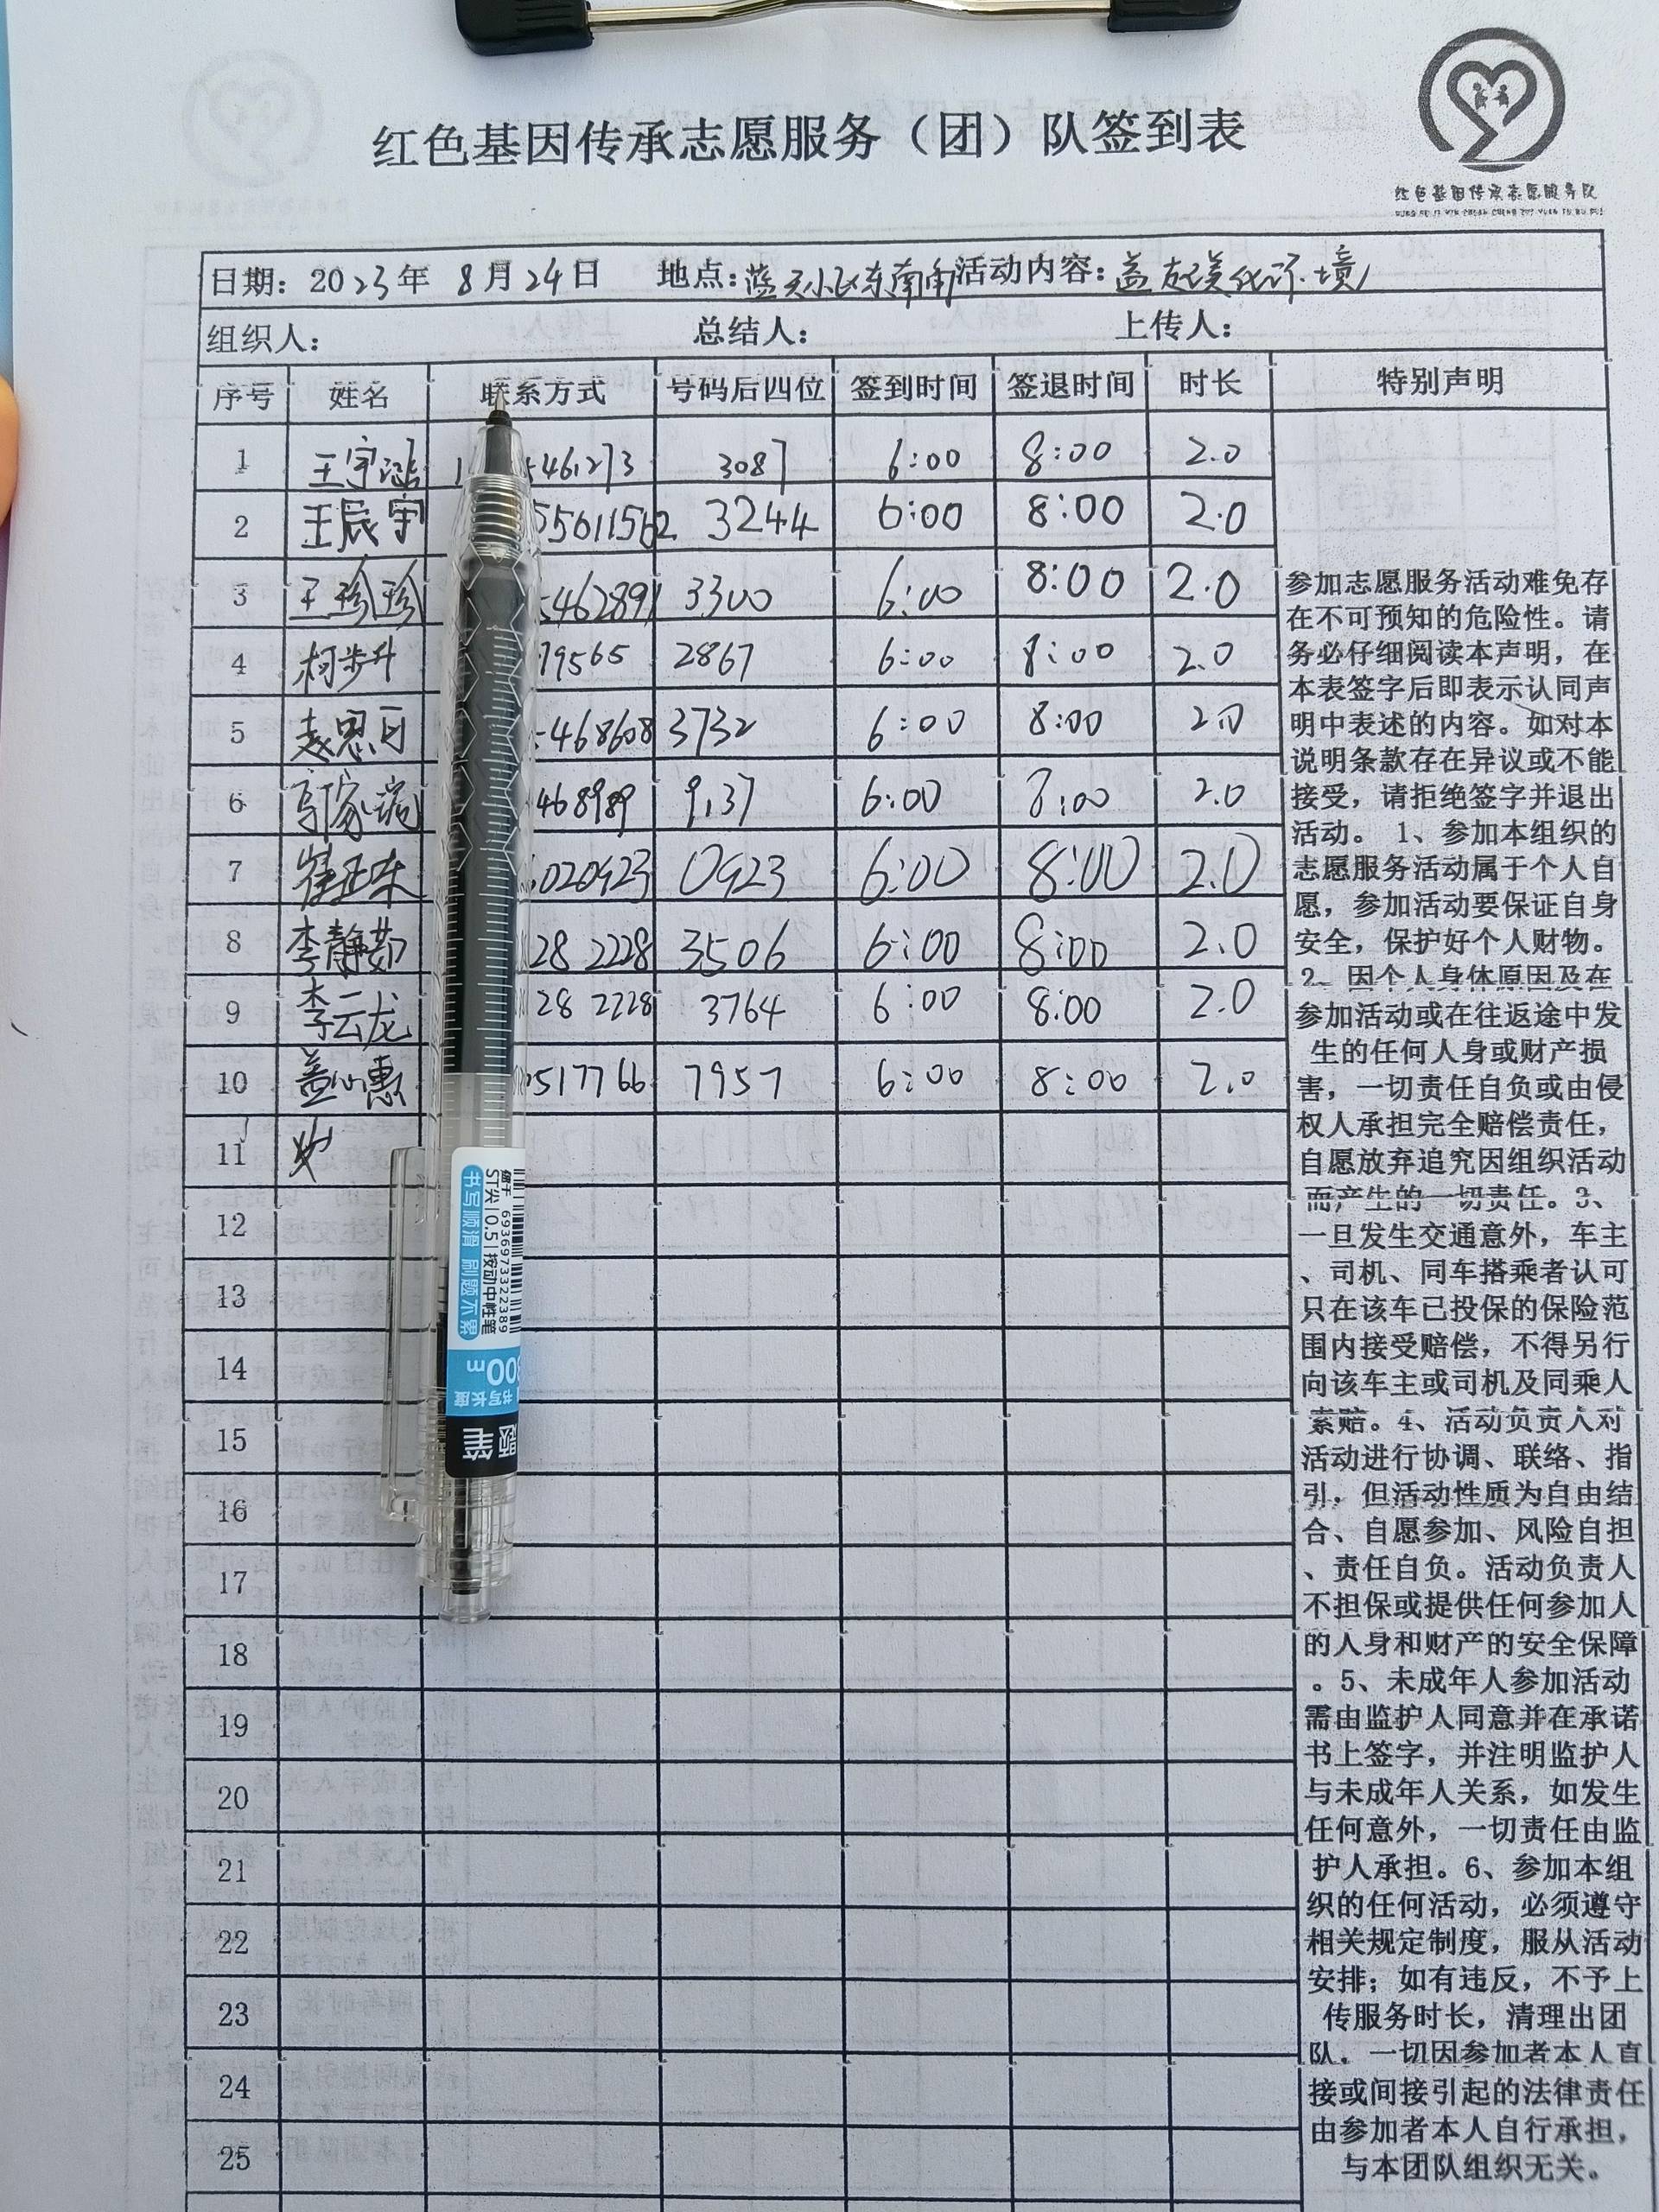 红色基因传承志愿服务（团）队签到表
红色基因传承志愿服务队
日期：2023年 8月24日 地点：蓝天小区东南角 活动内容：美化环境
组织人： 总结人： 上传人：
序号 姓名 联系方式 号码后四位 签到时间 签退时间 时长 特别声明
1 王宇涵 1 546273 3087 6:00 8:00 2.0
2 王辰宇 3244 6:00 8:00 2.0
3 王珍珍 3300 6:00 8:00 2.0
4 柯步升 79565 2867 6:00 8:00 2.0
5 袁思可 468608 3732 6:00 8:00 2.0
6 468989 9137 6:00 8:00 2.0
7 崔正东 020923 0923 6:00 8:00 2.0
8 李静茹 28 2228 3506 6:00 8:00 2.0
9 李云龙 28 2228 3764 6:00 8:00 2.0
10 517766 7957 6:00 8:00 2.0
11
12
13
14
15
16
17
18
19
20
21
22
23
24
25
参加志愿服务活动难免存
在不可预知的危险性。请
务必仔细阅读本声明，在
本表签字后即表示认同声
明中表述的内容。如对本
说明条款存在异议或不能
接受，请拒绝签字并退出
活动。 1、参加本组织的
志愿服务活动属于个人自
愿，参加活动要保证自身
安全，保护好个人财物。
2、因个人身体原因及在
参加活动或在往返途中发
生的任何人身或财产损
害，一切责任自负或由侵
权人承担完全赔偿责任，
自愿放弃追究因组织活动
而产生的一切责任。3、
一旦发生交通意外，车主
、司机、同车搭乘者认可
只在该车已投保的保险范
围内接受赔偿，不得另行
向该车主或司机及同乘人
索赔。4、活动负责人对
活动进行协调、联络、指
引，但活动性质为自由结
合、自愿参加、风险自担
、责任自负。活动负责人
不担保或提供任何参加人
的人身和财产的安全保障
。5、未成年人参加活动
需由监护人同意并在承诺
书上签字，并注明监护人
与未成年人关系，如发生
任何意外，一切责任由监
护人承担。6、参加本组
织的任何活动，必须遵守
相关规定制度，服从活动
安排；如有违反，不予上
传服务时长，清理出团
队。一切因参加者本人直
接或间接引起的法律责任
由参加者本人自行承担，
与本团队组织无关。
书写顺滑 刷题不累
ST尖|0.5|按动中性笔
6936973322389
书写长度
00m
题笔